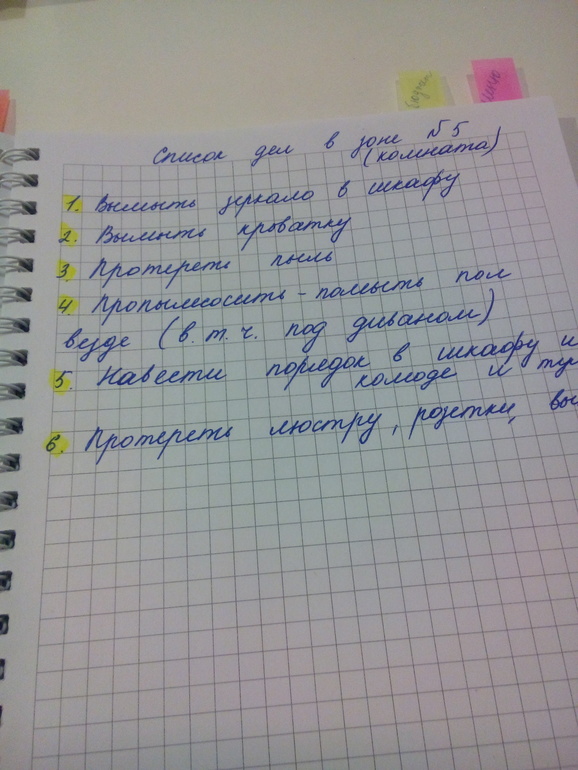 Список дел в зоне №5
(комната)
1. Вымыть зеркало в шкафу
2. Вымыть кроватку
3. Протереть пыль
4 Пропылесосить - помыть пол
везде (в. т. ч. под диваном)
5. Навести порядок в шкафу и
комоде и
6. Протереть люстру, розетки,